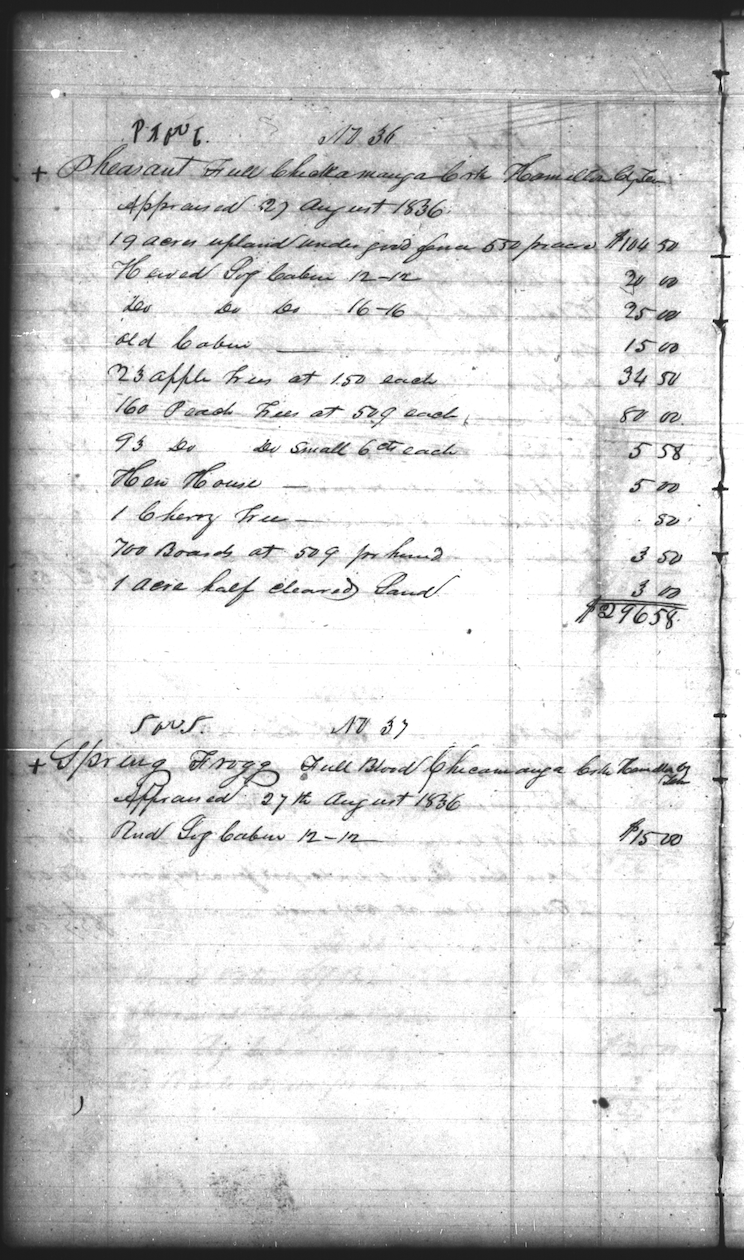 No 36
+ Pheasant Full Chickamauga Crk Hamilton Cy Ten
Appraised 27 August 1836
19 acres upland under good fence 550 pr acre $104 50
Hewed Log Cabin 12-12 20 00
Do Do Do 16-16 25 00
Old Cabin — 15 00
23 apple trees at 150 each 34 50
160 Peach Trees at 50¢ each 80 00
93 Do Do Small 6cts each 5 58
Hen House — 5 00
1 Cherry Tree — 50
700 Boards at 50¢ pr hund 3 50
1 acre half cleared Land 3 00
$296 58
No 37
+ Spring Frogg Full Blood Chicamauga Crk Hamilton Cy Ten
Appraised 27th August 1836
Rnd Log Cabin 12-12 $15 00